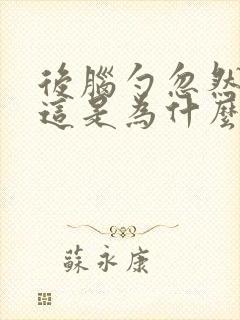 後腦勺忽然
這是為什麼
蘇永康